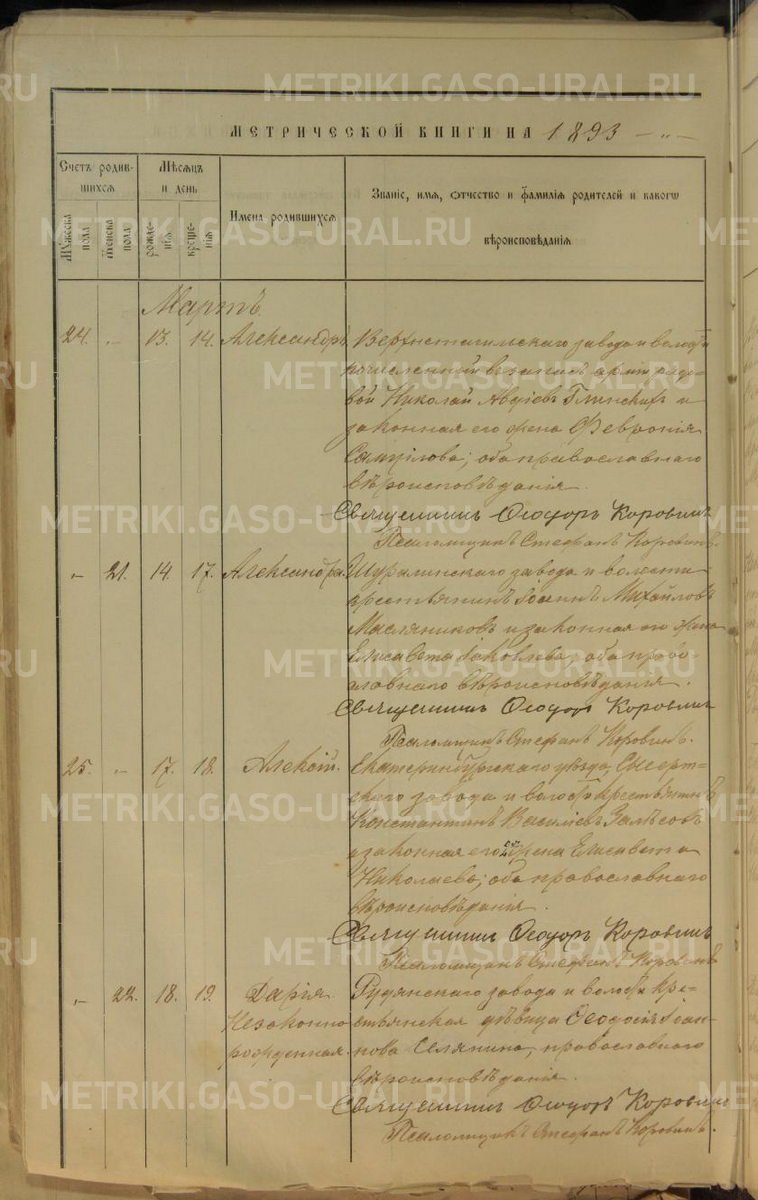 METRIKI.GASO-URAL.RU
МЕТРИЧЕСКОЙ КНИГИ НА 1893
Счетъ родив-
шихся
Мѣсяцъ
и день
Имена родившихся
Званіе, имя, отчество и фамилія родителей и какого
вѣроисповѣданія
Мужеска
пола
Женска
пола
рожде-
нія
креще-
нія
METRIKI.GASO-URAL.RU
Мартъ.
24. „ 13. 14. Александръ Верхнетагильскаго завода и волости
METRIKI.GASO-URAL.RU
вой Николай Авдіевъ Глинскихъ и
законная его жена Февронія
Самуилова; оба православнаго
вѣроисповѣданія.
Священникъ Ѳеодоръ Коровинъ
METRIKI.GASO-URAL.RU
Псаломщикъ Стефанъ Коровинъ.
„ 21. 14. 17. Александра Шуралинскаго завода и волости
крестьянинъ Іоаннъ Михайловъ
Масляниковъ и законная его жена
Елисавета Іаковлева, оба право-
славнаго вѣроисповѣданія.
METRIKI.GASO-URAL.RU
Священникъ Ѳеодоръ Коровинъ
Псаломщикъ Стефанъ Коровинъ.
25. „ 17. 18. Алексій. Екатеринбургскаго уѣзда, Сысерт-
скаго завода и волости крестьянинъ
METRIKI.GASO-URAL.RU
Константинъ Василіевъ
законная его жена Елисавета
Николаева; оба православнаго
вѣроисповѣданія.
Священникъ Ѳеодоръ Коровинъ
METRIKI.GASO-URAL.RU
Псаломщикъ Стефанъ Коровинъ
„ 22. 18. 19. Дарія Рудянскаго завода и волости кре-
Незаконно стьянская дѣвица Ѳеодосія Іоан-
рожденная. нова Селянина, православнаго
вѣроисповѣданія.
METRIKI.GASO-URAL.RU
Священникъ Ѳеодоръ Коровинъ
Псаломщикъ Стефанъ Коровинъ.